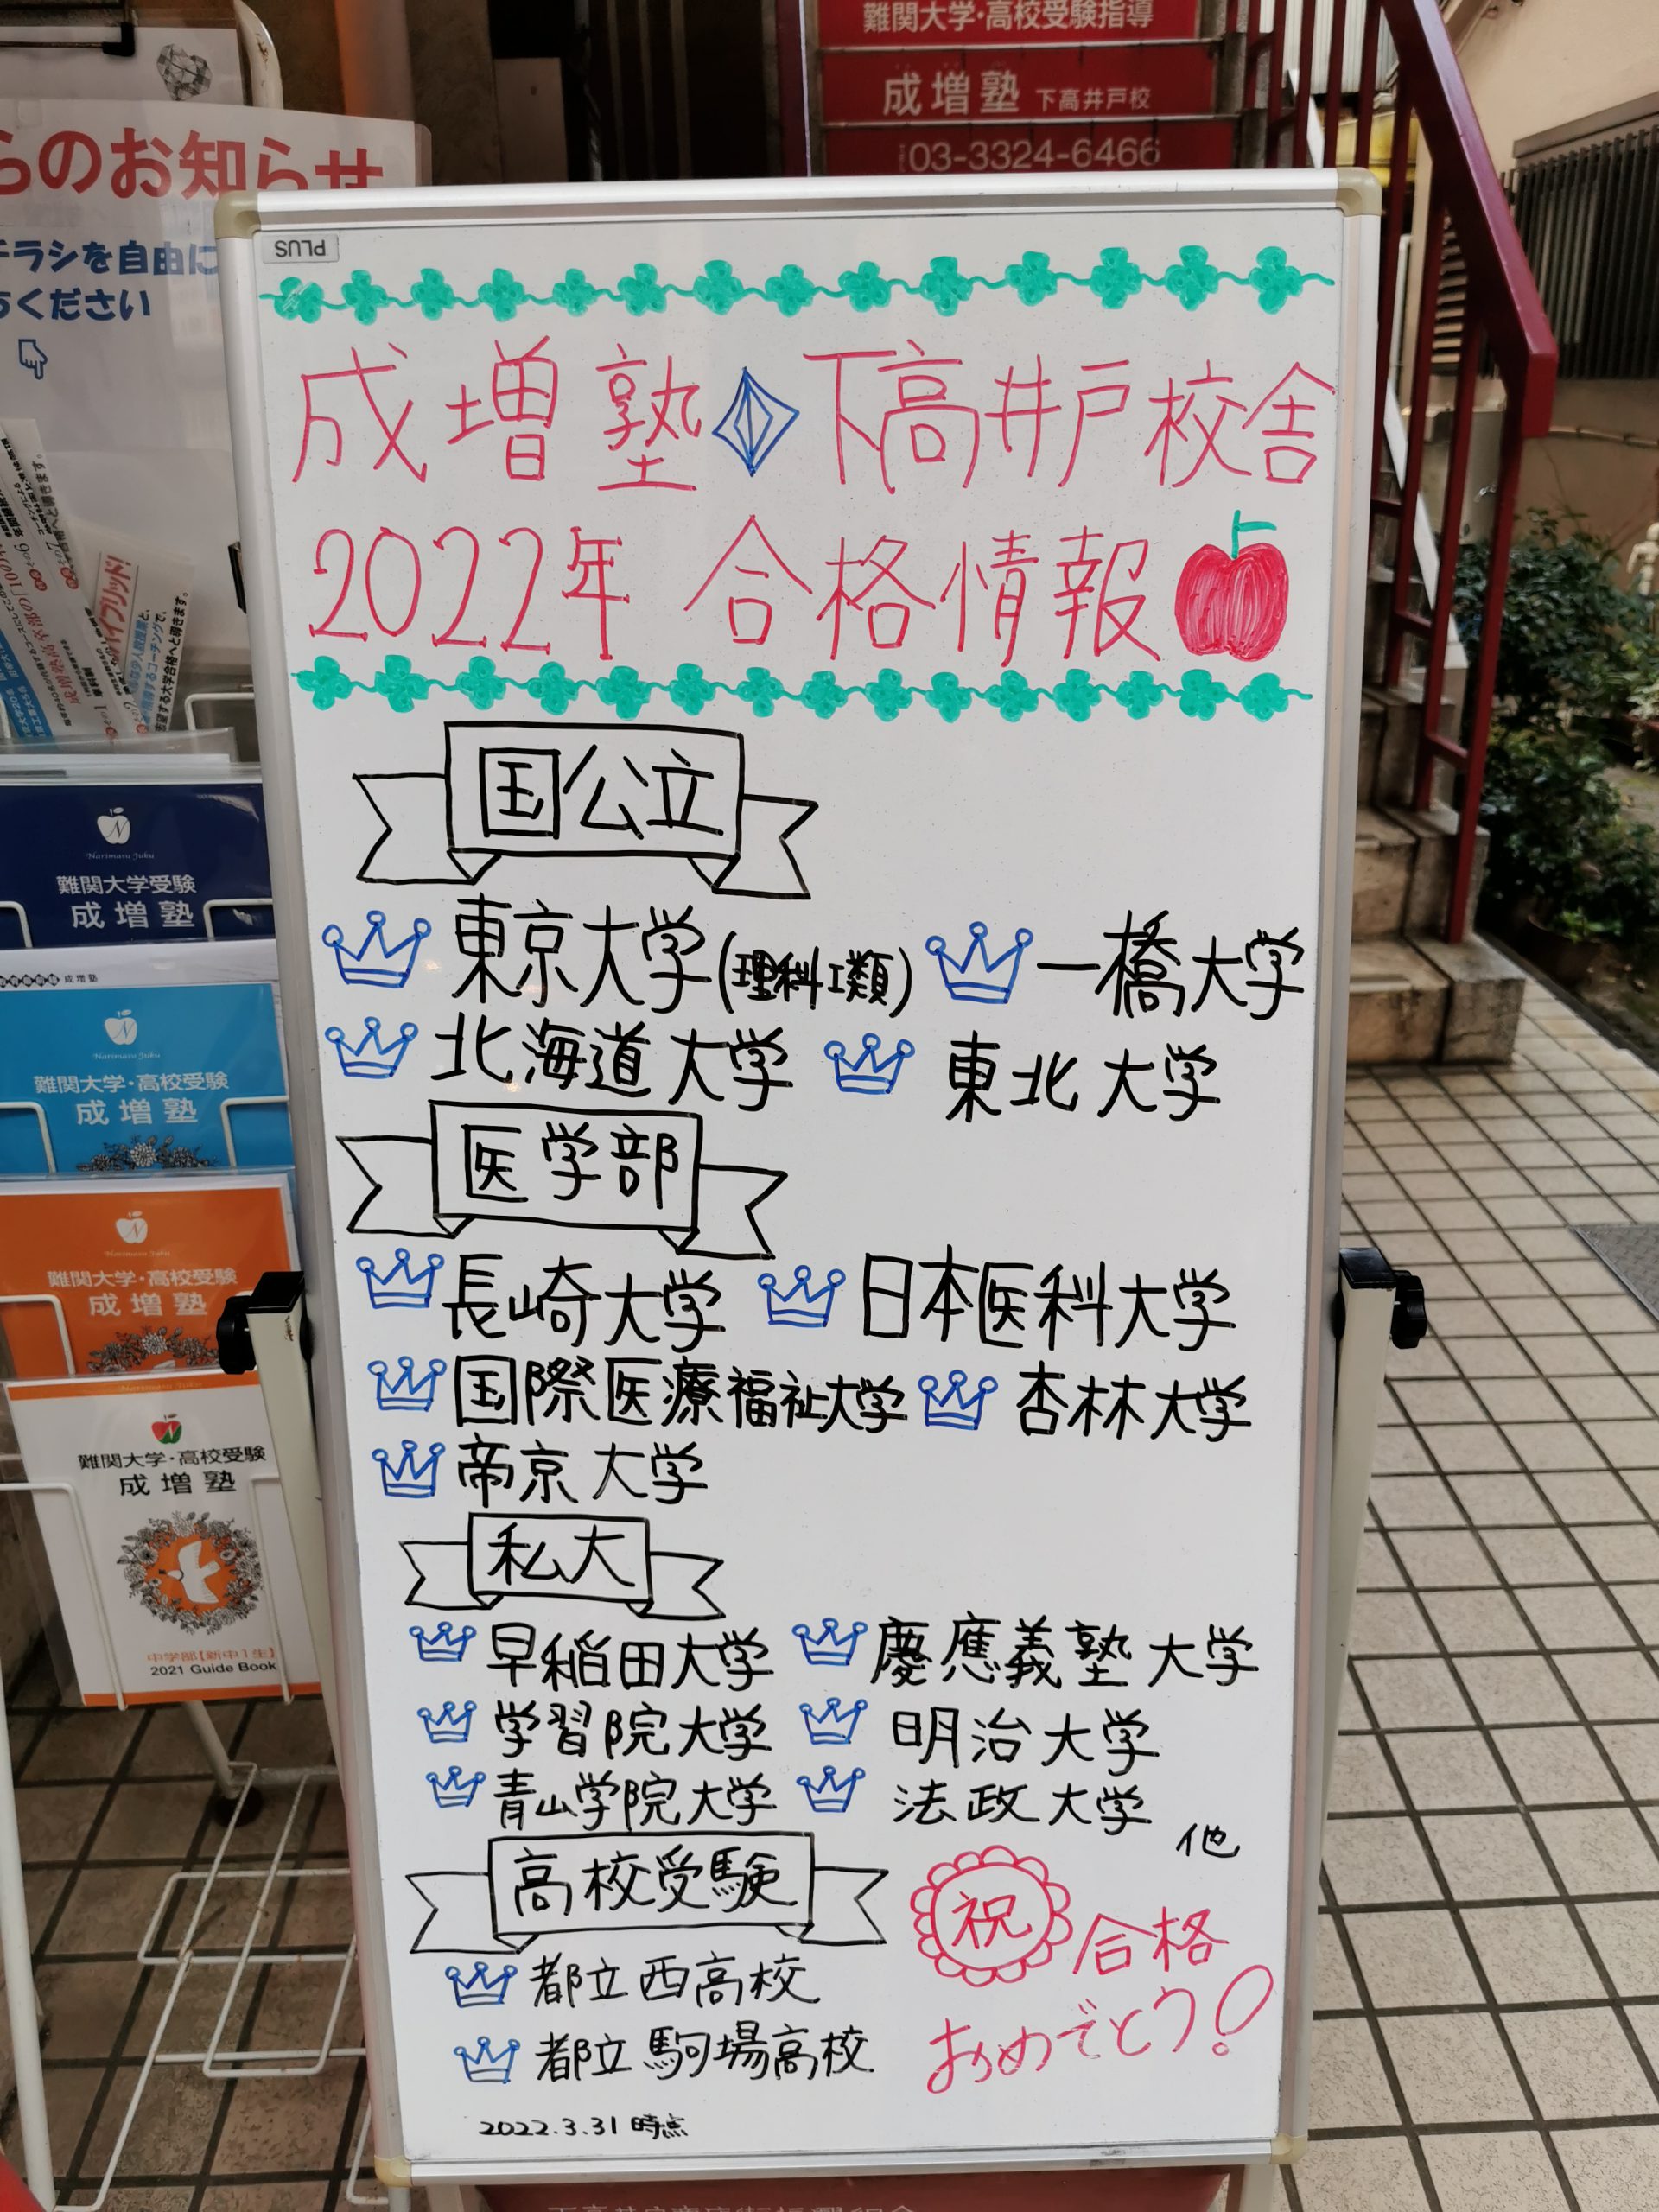 難関大学・高校受験指導
成増塾 下高井戸校
03-3324-6466
らのお知らせ
チラシを自由に
ください
PLUS
成増塾 下高井戸校舎
2022年 合格情報
国公立
東京大学(理科I類) 一橋大学
北海道大学 東北大学
医学部
長崎大学 日本医科大学
国際医療福祉大学 杏林大学
帝京大学
私大
早稲田大学 慶應義塾大学
学習院大学 明治大学
青山学院大学 法政大学
他
高校受験
都立西高校
都立駒場高校
祝 合格
おめでとう!
2022.3.31 時点
N
Narimasu Juku
難関大学受験
成増塾
成増塾
N
Narimasu Juku
難関大学・高校受験
成増塾
N
Narimasu Juku
難関大学・高校受験
成増塾
Narimasu Juku
難関大学・高校受験
成増塾
中学部【新中1生】
2021 Guide Book
ハイブリッド!